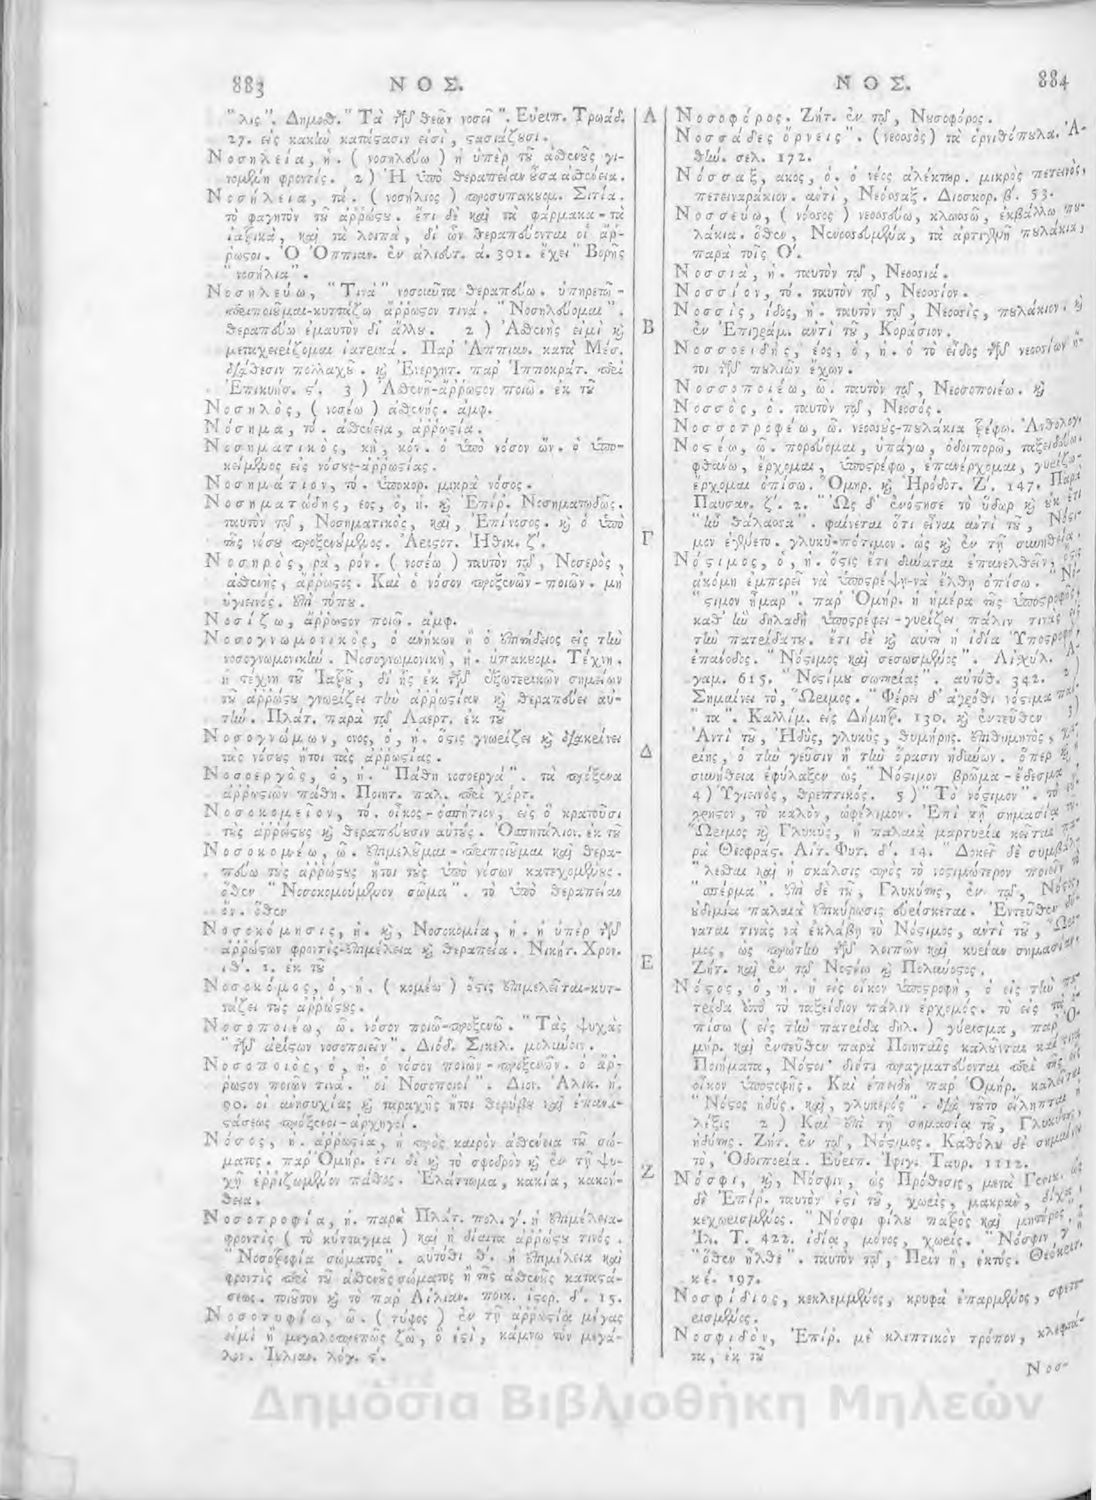 883 ΝΟΣ.
"λις". Δημοσθ. "Τὰ τῶν θεῶν νοσεῖ". Εὐριπ. Τρωάδ.
27. εἰς κακὴν κατάστασιν εἰσὶ, στασιάζουσι.
Νοσηλεία, ἡ. ( νοσηλεύω ) ἡ ὑπὲρ τοῦ ἀσθενοῦς γι-
νομένη φροντίς. 2 ) Ἡ ὑπὸ θεραπείαν οὖσα ἀσθένεια.
Νοσήλεια, τά. ( νοσήλιος ) προσυπακούομ. Σιτία.
τὸ φαγητὸν τοῦ ἀρρώστου. ἔτι δὲ καὶ τὰ φάρμακα-τὰ
ἰατρικὰ, καὶ τὰ λοιπὰ, δι' ὧν θεραπεύονται οἱ ἄρ-
ρωστοι. Ὁ Ὀππιαν. ἐν ἁλιευτ. ά. 301. ἔχει "Βορῆς
"νοσήλια".
Νοσηλεύω, "Τινὰ" νοσοῦντα θεραπεύω. ὑπηρετῶ-
περιποιοῦμαι-κυττάζω ἄρρωστον τινά. "Νοσηλεύομαι".
θεραπεύω ἐμαυτὸν δι' ἄλλου. 2 ) Ἀσθενής εἰμι καὶ
μεταχειρίζομαι ἰατρικά. Παρ' Ἀππιαν. κατὰ Μέσ.
διάθεσιν πολλαχοῦ. καὶ Ἐνεργητ. παρ' Ἱπποκράτ. περὶ
Ἐπικυήσ. ς'. 3 ) Ἀσθενῆ-ἄρρωστον ποιῶ. ἐκ τοῦ
Νοσηλὸς, ( νοσέω ) ἀσθενής. ἀμφ.
Νόσημα, τό. ἀσθένεια, ἀρρωστία.
Νοσηματικὸς, κὴ, κόν. ὁ ὑπὸ νόσον ὤν. ὁ ὑπο-
κείμενος εἰς νόσους-ἀρρωστίας.
Νοσημάτιον, τό. ὑποκορ. μικρὰ νόσος.
Νοσηματώδης, εος, ὁ, ἡ. καὶ Ἐπίρ. Νοσηματωδῶς.
ταυτὸν τῷ, Νοσηματικὸς, καὶ, Ἐπίνοσος. καὶ ὁ ὑπὸ
τῆς νόσου προξενούμενος. Ἀριστοτ. Ἠθικ. ζ'.
Νοσηρὸς, ρὰ, ρόν. ( νοσέω ) ταυτὸν τῷ, Νοσερὸς,
ἀσθενὴς, ἄρρωστος. Καὶ ὁ νόσον προξενῶν-ποιῶν. μὴ
ὑγιεινός. ἐπὶ τόπου.
Νοσίζω, ἄρρωστον ποιῶ. ἀμφ.
Νοσογνωμονικὸς, ὁ ἀνήκων ἢ ὁ ἐπιτήδειος εἰς τὴν
νοσογνωμονικήν. Νοσογνωμονικὴ, ἡ. ὑπακουομ. Τέχνη.
ἡ τέχνη τοῦ Ἰατροῦ, δι' ἧς ἐκ τῶν ἐξωτερικῶν σημείων
τοῦ ἀρρώστου γνωρίζει τὴν ἀρρωστίαν καὶ θεραπεύει αὐ-
τήν. Πλάτ. παρὰ τῷ Λαερτ. ἐκ τοῦ
Νοσογνώμων, ονος, ὁ, ἡ. ὅστις γνωρίζει καὶ διακρίνει
τὰς νόσους ἤτοι τὰς ἀρρωστίας.
Νοσοεργὸς, ὁ, ἡ. "Πάθη νοσοεργά". τὰ πρόξενα
ἀρρωστιῶν πάθη. Ποιητ. παλ. περὶ χόρτ.
Νοσοκομεῖον, τό. οἶκος-ὁσπήτιον, εἰς ὃ κρατοῦσι
τοὺς ἀρρώστους καὶ θεραπεύουσιν αὐτούς. Ὁσπητάλιον. ἐκ τοῦ
Νοσοκομέω, ῶ. ἐπιμελοῦμαι-περιποιοῦμαι καὶ θερα-
πεύω τοὺς ἀρρώστους ἤτοι τοὺς ὑπὸ νόσων κατεχομένους.
ὅθεν "Νοσοκομούμενον σῶμα". τὸ ὑπὸ θεραπείαν
ὄν. ὅθεν
Νοσοκόμησις, ἡ. καὶ, Νοσοκομία, ἡ. ἡ ὑπὲρ τῶν
ἀρρώστων φροντίς-ἐπιμέλεια καὶ θεραπεία. Νικήτ. Χρον.
ιθ'. 1. ἐκ τοῦ
Νοσοκόμος, ὁ, ἡ. ( κομέω ) ὅστις ἐπιμελεῖται-κυτ-
τάζει τοὺς ἀρρώστους.
Νοσοποιέω, ῶ. νόσον ποιῶ-προξενῶ. "Τὰς ψυχὰς
"τῶν ἀρίστων νοσοποιεῖν". Διόδ. Σικελ. μολύνειν.
Νοσοποιὸς, ὁ, ἡ. ὁ νόσον ποιῶν-προξενῶν. ὁ ἄρ-
ρωστον ποιῶν τινά. "οἱ Νοσοποιοί". Διον. Ἁλικ. ή.
90. οἱ ἀνησυχίας καὶ ταραχῆς ἤτοι θορύβου καὶ ἐπανα-
στάσεως πρόξενοι-ἀρχηγοί.
Νόσος, ἡ. ἀρρωστία, ἡ πρὸς καιρὸν ἀσθένεια τοῦ σώ-
ματος. παρ' Ὁμήρ. ἔτι δὲ καὶ τὸ σφοδρὸν καὶ ἐν τῇ ψυ-
χῇ ἐρριζωμένον πάθος. Ἐλάττωμα, κακία, κακοή-
θεια.
Νοσοτροφία, ἡ. παρὰ Πλάτ. πολ. γ'. ἡ ἐπιμέλεια-
φροντὶς ( τὸ κύτταγμα ) καὶ ἡ δίαιτα ἀρρώστου τινός.
"Νοσοτροφία σώματος". αὐτόθι θ'. ἡ ἐπιμέλεια καὶ
φροντὶς περὶ τοῦ ἀσθενοῦς σώματος ἢ τῆς ἀσθενοῦς καταστά-
σεως. τοιοῦτον καὶ τὸ παρ' Αἰλιαν. ποικ. ἱστορ. δ'. 15.
Νοσοτυφέω, ῶ. ( τύφος ) ἐν τῇ ἀρρωστίᾳ μέγας
εἰμὶ ἢ μεγαλοπρεπῶς ζῶ, ὅ ἐστι, κάμνω τὸν μεγά-
λον. Ἰουλιαν. λόγ. ς'.
Α
Β
Γ
Δ
Ε
Ζ
ΝΟΣ. 884
Νοσοφόρος. Ζήτ. ἐν τῷ, Νουσοφόρος.
Νοσσάδες ὄρνεις". (νεοσσὸς) τὰ ὀρνιθόπουλα. Ἀ-
θήν. σελ. 172.
Νόσσαξ, ακος, ὁ. ὁ νέος ἀλέκτωρ. μικρὸς πετεινὸς,
πετειναράκιον. ἀντὶ, Νεόσσαξ. Διοσκορ. β'. 53.
Νοσσεύω, ( νόσσος ) νεοσσεύω, κλωσσῶ, ἐκβάλλω που-
λάκια. ὅθεν, Νενοσσευμένα, τὰ ἀρτιγενῆ πουλάκια,
παρὰ τοῖς Ο'.
Νοσσιὰ, ἡ. ταυτὸν τῷ, Νεοσσιά.
Νοσσίον, τό. ταυτὸν τῷ, Νεοσσίον.
Νοσσὶς, ίδος, ἡ. ταυτὸν τῷ, Νεοσσὶς, πουλάκιον. καὶ
ἐν Ἐπιγράμ. ἀντὶ τοῦ, Κοράσιον.
Νοσσοειδὴς, έος, ὁ, ἡ. ὁ τὸ εἶδος τῶν νεοσσίων ἤ-
τοι τῶν πουλιῶν ἔχων.
Νοσσοποιέω, ῶ. ταυτὸν τῷ, Νεοσσοποιέω. καὶ
Νοσσὸς, ὁ. ταυτὸν τῷ, Νεοσσός.
Νοσσοτροφέω, ῶ. νεοσσοὺς-πουλάκια τρέφω. Ἀνθολογ.
Νοστέω, ῶ. πορεύομαι, ὑπάγω, ὁδοιπορῶ, ταξειδεύω.
φθάνω, ἔρχομαι, ὑποστρέφω, ἐπανέρχομαι, γυρίζω-
ἔρχομαι ὀπίσω. Ὁμηρ. καὶ Ἡρόδοτ. Ζ'. 147. Παρὰ
Παυσαν. ζ'. 2. "Ὡς δ' ἐνόστησε τὸ ὕδωρ καὶ οὐκ ἔτι
"ἦν θάλασσα". φαίνεται ὅτι εἶναι ἀντὶ τοῦ, Νόστι-
μον ἐγένετο. γλυκὺ-πότιμον. ὡς καὶ ἐν τῇ συνηθείᾳ.
Νόστιμος, ὁ, ἡ. ὅστις ἔτι δύναται ἐπανελθεῖν, ὅστις
ἀκόμη ἐμπορεῖ νὰ ὑποστρέψῃ-νὰ ἔλθῃ ὀπίσω. "Νό-
"στιμον ἦμαρ". παρ' Ὁμήρ. ἡ ἡμέρα τῆς ὑποστροφῆς,
καθ' ἣν δηλαδὴ ὑποστρέφει-γυρίζει πάλιν τινὰς εἰς
τὴν πατρίδα του. ἔτι δὲ καὶ αὐτὴ ἡ ἰδία Ὑποστροφὴ,
ἐπάνοδος. "Νόστιμος καὶ σεσωσμένος". Αἰσχύλ. Ἀ-
γαμ. 615. "Νοστίμου σωτηρίας". αὐτόθ. 342. 2 )
Σημαίνει τὸ, Ὥριμος. "Φέρει δ' ἀγρόθι νόστιμα πάν-
"τα". Καλλίμ. εἰς Δήμητρ. 130. καὶ ἐντεῦθεν 3 )
Ἀντὶ τοῦ, Ἡδὺς, γλυκὺς, θυμήρης. ἐπιθυμητὸς,
εἰης, ὁ τὴν γεῦσιν ἢ τὴν ὅρασιν ἡδύνων. ὅπερ ἡ
συνήθεια ἐφύλαξεν ὡς "Νόστιμον βρῶμα-ἔδεσμα".
4 ) Ὑγιεινὸς, θρεπτικός. 5 ) "Τὸ νόστιμον". τὸ
χρηστὸν, τὸ καλὸν, ὠφέλιμον. Ἐπὶ τῇ σημασίᾳ τοῦ
"Ὥριμος καὶ Γλυκὺς, ἡ παλαιὰ μαρτυρία κεῖται πα-
ρὰ Θεοφράστ. Αἰτ. Φυτ. δ'. 14. "Δοκεῖ δὲ συμβάλ-
"λεσθαι καὶ ἡ σκάλσις πρὸς τὸ νοστιμώτερον ποιεῖν τὸ
"σπέρμα". ἐπὶ δὲ τοῦ, Γλυκύτης, ἐν τῷ, Νόστος,
οὐδεμία παλαιὰ ἐπικύρωσις εὑρίσκεται. Ἐντεῦθεν δύ-
ναται τινὰς νὰ ἐκλάβῃ τὸ Νόστιμος, ἀντὶ τοῦ, Ὥρι-
μος, ὡς πρώτην τῶν λοιπῶν καὶ κυρίαν σημασίαν.
Ζήτ. καὶ ἐν τῷ Νοστέω καὶ Πολυάνοστος.
Νόστος, ὁ, ἡ. ἡ εἰς οἶκον ὑποστροφὴ, ὁ εἰς τὴν πα-
τρίδα ἀπὸ τὸ ταξείδιον πάλιν ἐρχομός. τὸ εἰς τὰ ὀ-
πίσω ( εἰς τὴν πατρίδα δηλ. ) γύρισμα, παρ' Ὁ-
μήρ. καὶ ἐντεῦθεν παρὰ Ποιηταῖς καλοῦνται καὶ τινὰ
Ποιήματα, Νόστοι διότι πραγματεύονται περὶ τῆς εἰς
οἶκον ὑποστροφῆς. Καὶ ἐπειδὴ παρ' Ὁμήρ. καλεῖται
"Νόστος ἡδὺς. καὶ, γλυκερὸς". διὰ τοῦτο εἴληπται ἡ
λέξις 2 ) Καὶ ἐπὶ τῇ σημασίᾳ τοῦ, Γλυκύτης,
ἡδύτης. Ζήτ. ἐν τῷ, Νόστιμος. Καθόλου δὲ σημαίνει
τὸ, Ὁδοιπορία. Εὐριπ. Ἰφιγ. Ταυρ. 1112.
Νόσφι, καὶ, Νόσφιν, ὡς Πρόθεσις, μετὰ Γενικ. ὡς
δὲ Ἐπίρ. ταυτὸν ἐστὶ τοῦ, χωρὶς, μακρὰν, δίχα,
κεχωρισμένος. "Νόσφι φίλου πατρὸς καὶ μητέρος".
Ἰλ. Τ. 422. ἰδίᾳ, μόνος, χωρίς. "Νόσφιν ἢ
"ὅθεν ἦλθε". ταυτὸν τῷ, Πλὴν ἢ, ἐκτός. Θεόκριτ.
κέ. 197.
Νοσφίδιος, κεκλεμμένος, κρυφὰ ἐπαρμένος, σφετε-
ρισμένος.
Νοσφιδὸν, Ἐπίρ. μὲ κλεπτικὸν τρόπον, κλεφτά-
τα, ἐκ τοῦ
Νοσ-
Δημόσια Βιβλιοθήκη Μηλεών